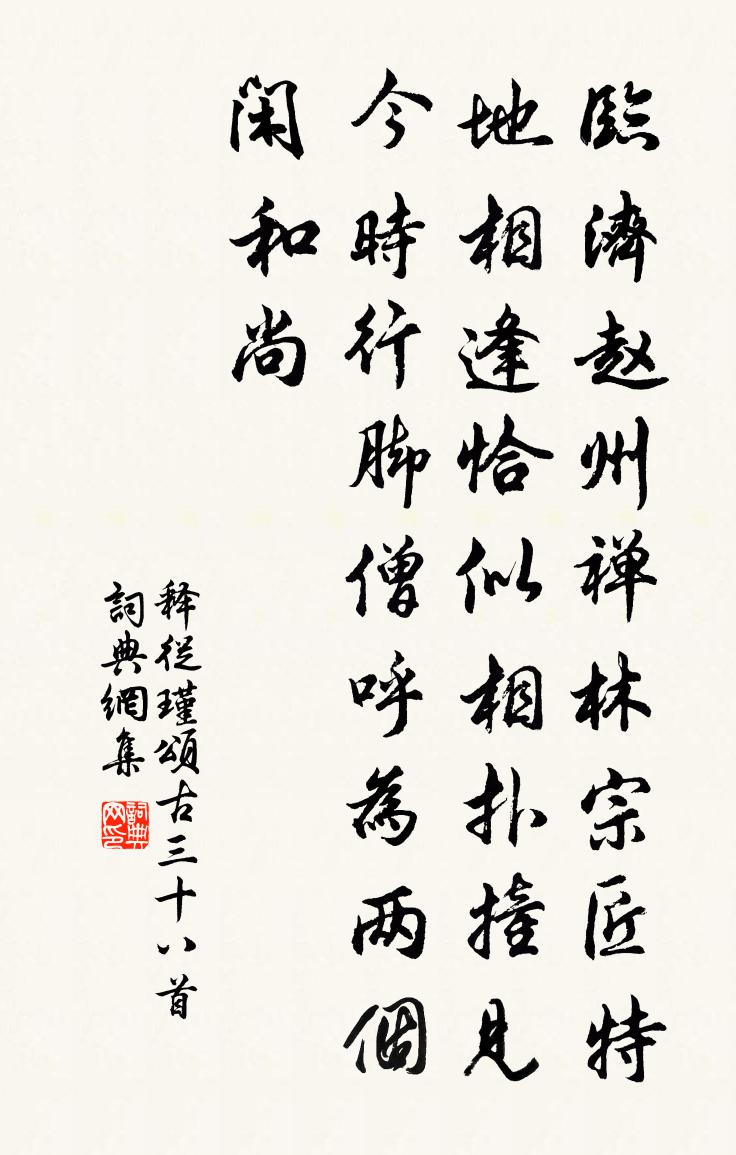 臨濟赵州禅林宗匠特
地相逢恰似相扑撞見
今時行脚僧呼為两個
閑和尚
释從瑾頌古三十八首
詞典網集
詞典网印